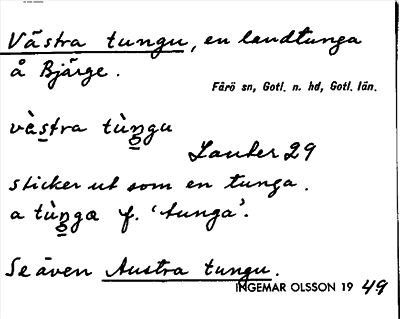 Västra tungu, en landtunga
å Bjärge.
Fårö sn, Gotl. n. hd, Gotl. län.
vàstra tùngu
Lauter 29
sticker ut som en tunga.
a tùnga f. 'tunga'.
Se även Austra tungu.
INGEMAR OLSSON 19 49